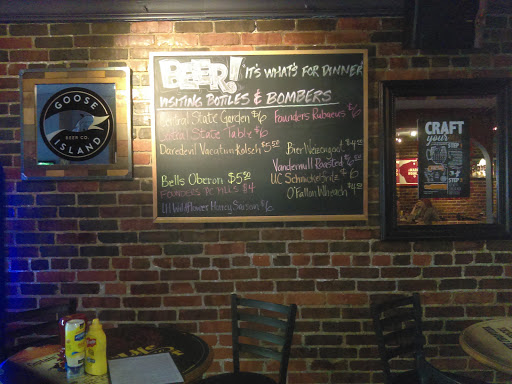 BEER! IT'S WHAT'S FOR DINNER
VISITING BOTTLES & BOMBERS
Central State Garden $6
Central State Table $6
Daredevil Vacation Kolsch $5.50
Bells Oberon $5.50
FOUNDERS DC MILLS $4
Wildflower Honey Saison $6
Founders Rubaeus $6
$4.50
Vandermill $6
UC Schnickelfritz $6
O'Fallon Wheach $4.50
GOOSE
BEER CO.
ISLAND
CRAFT
your